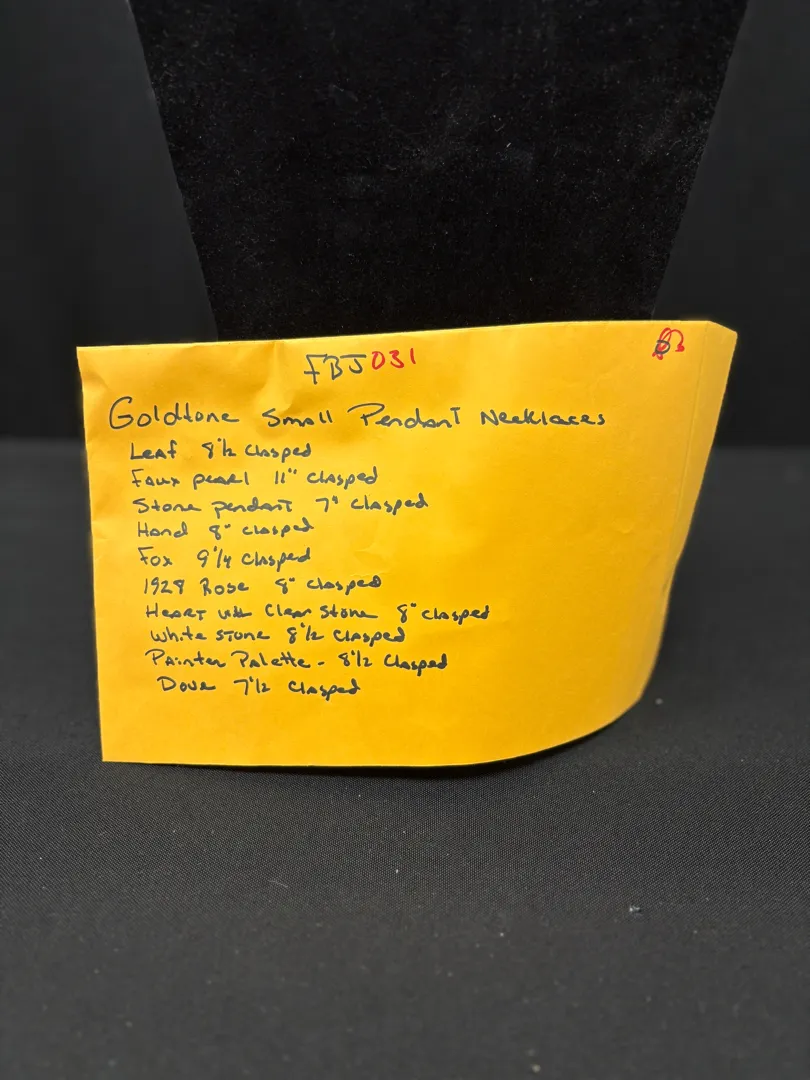 FBJ031
Goldtone Small Pendant Necklaces
Leaf 8 1/2 Clasped
Faux pearl 11" Clasped
Stone pendant 7" Clasped
Hand 8" Clasped
Fox 9 1/4 Clasped
1928 Rose 8" Clasped
Heart with Clear Stone 8" Clasped
White Stone 8 1/2 Clasped
Painter Palette - 8 1/2 Clasped
Dove 7 1/2 Clasped